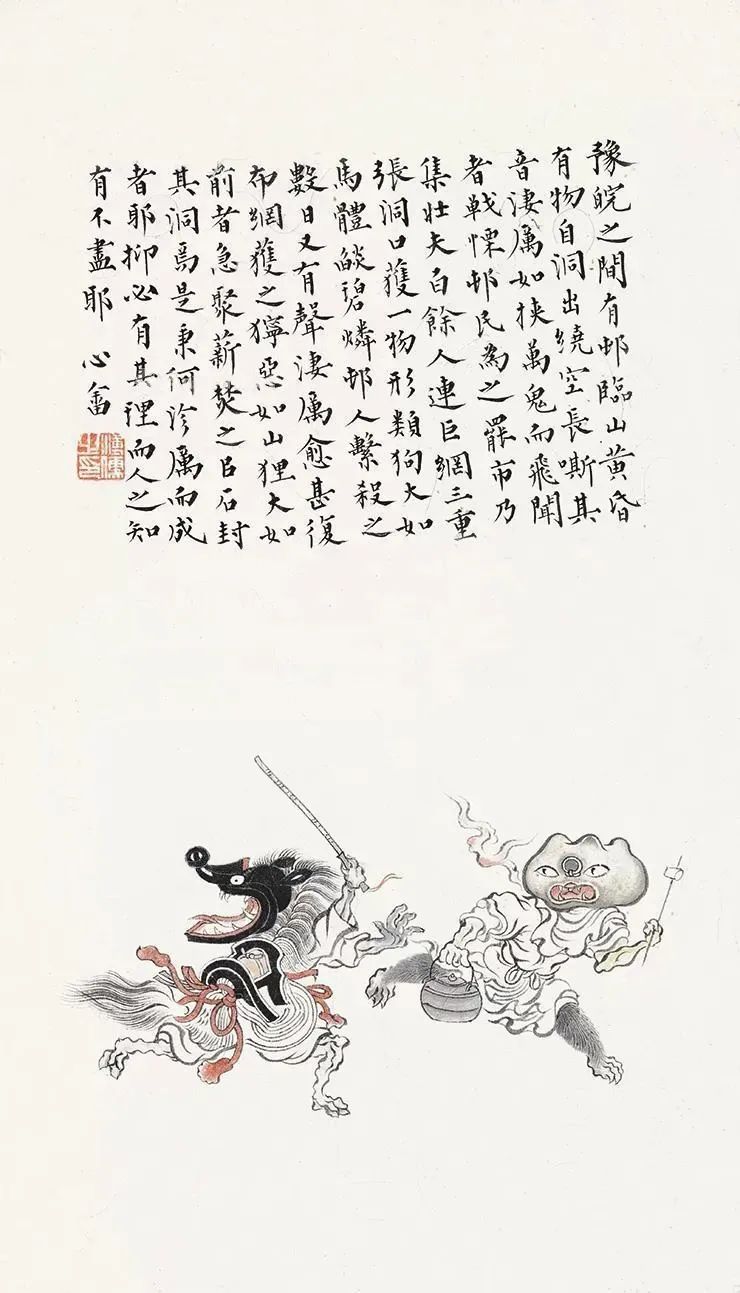 豫皖之間有邨臨山黃昏
有物自洞出繞空長嘶其
音淒厲如挾萬鬼而飛聞
者戰慄邨民為之罷市乃
集壯夫百餘人連巨網三重
張洞口獲一物形類狗大如
馬體燄碧燐邨人繫殺之
數日又有聲淒厲愈甚復
布網獲之獰惡如山狸大如
前者急聚薪焚之巨石封
其洞焉是秉何沴厲而成
者耶抑必有其理而人之知
有不盡耶 心畬
溥儒之印